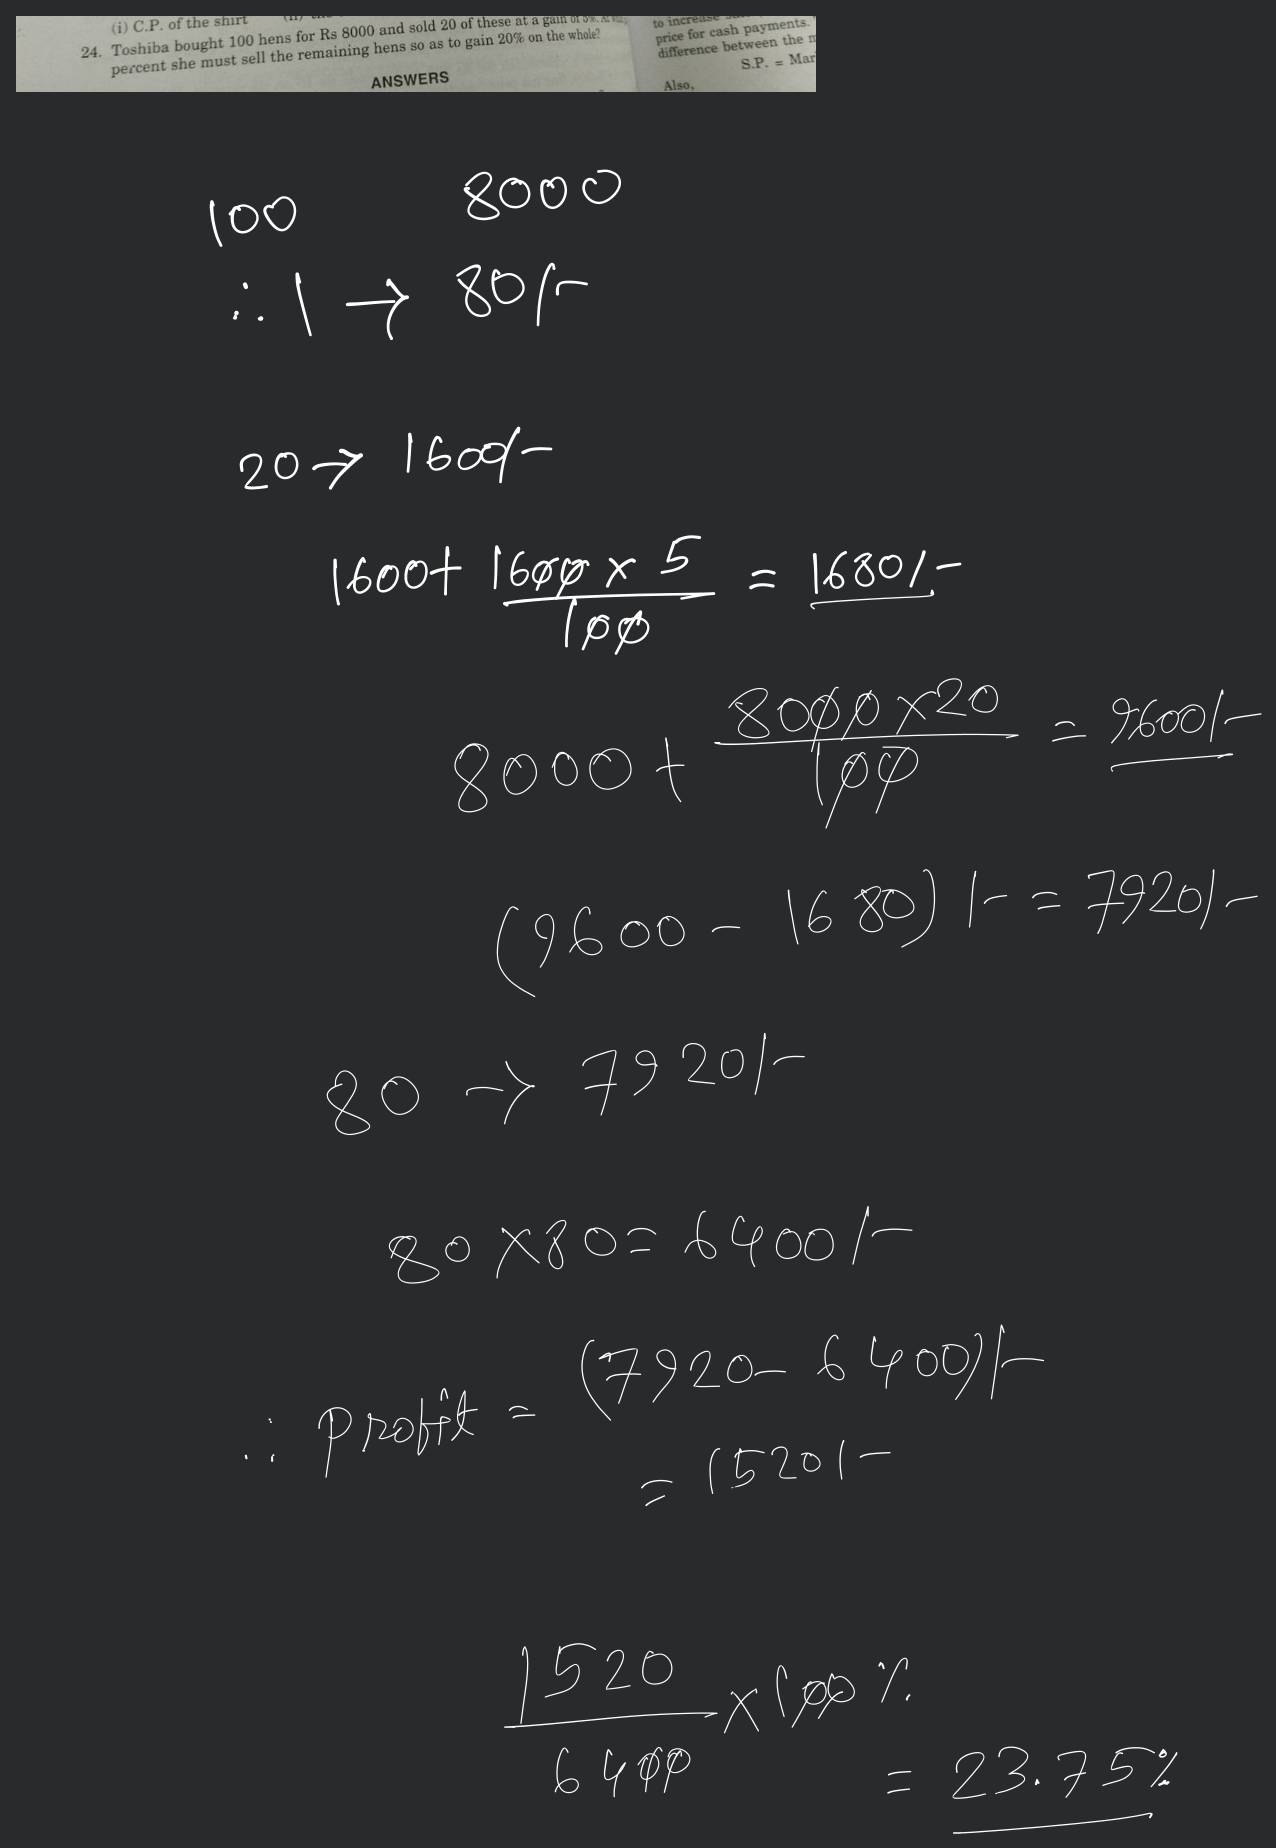 (i) C.P. of the shirt
24. Toshiba bought 100 hens for Rs 8000 and sold 20 of these at a gain of 5%. At
percent she must sell the remaining hens so as to gain 20% on the whole?
ANSWERS
to increase
price for cash payments.
difference between the
S.P. = Mar
Also,
100 8000
∴ 1 → 80/-
20 → 1600/-
1600 + 1600 × 5 / 100 = 1680/-
8000 + 8000 × 20 / 100 = 9600/-
(9600 - 1680) /- = 7920/-
80 → 7920/-
80 × 80 = 6400/-
∴ Profit = (7920 - 6400)/-
= 1520/-
1520 / 6400 × 100 %
= 23.75%